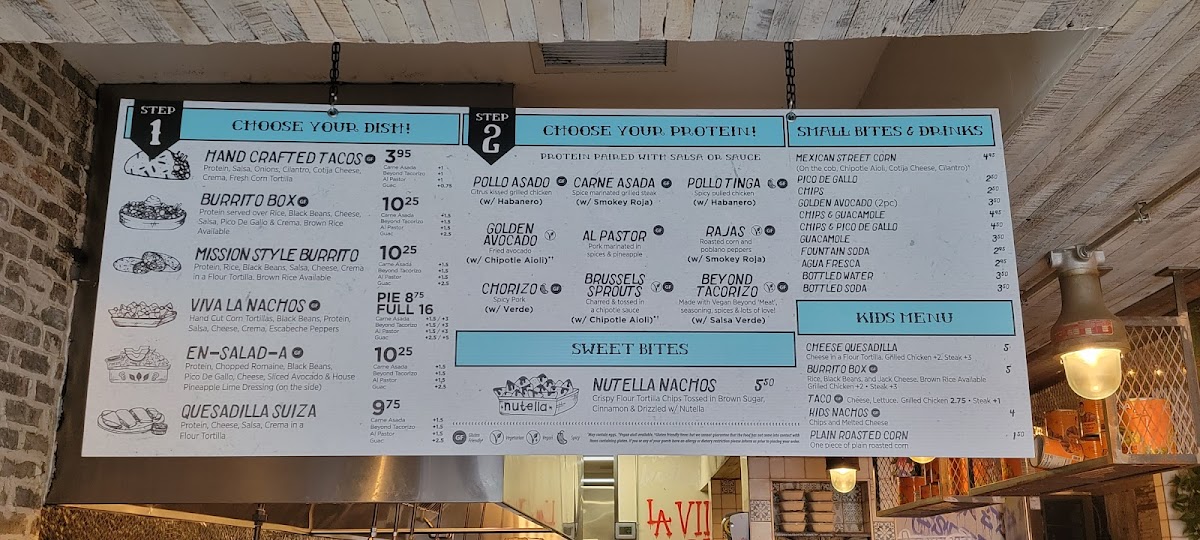 STEP 1
CHOOSE YOUR DISH!
HAND CRAFTED TACOS GF 3.95
Protein, Salsa, Onions, Cilantro, Cotija Cheese,
Crema, Fresh Corn Tortilla
Carne Asada +1
Beyond Tacorizo +1
Al Pastor +1
Guac +0.75
BURRITO BOX GF 10.25
Protein served over Rice, Black Beans, Cheese,
Salsa, Pico De Gallo & Crema. Brown Rice
Available
Carne Asada +1.5
Beyond Tacorizo +1.5
Al Pastor +1.5
Guac +2.5
MISSION STYLE BURRITO 10.25
Protein, Rice, Black Beans, Salsa, Cheese, Crema
in a Flour Tortilla. Brown Rice Available
Carne Asada +1.5
Beyond Tacorizo +1.5
Al Pastor +1.5
Guac +2.5
VIVA LA NACHOS GF PIE 8.75
FULL 16
Hand Cut Corn Tortillas, Black Beans, Protein,
Salsa, Cheese, Crema, Escabeche Peppers
Carne Asada +1.5 / +3
Beyond Tacorizo +1.5 / +3
Al Pastor +1.5 / +3
Guac +2.5 / +5
EN-SALAD-A GF 10.25
Protein, Chopped Romaine, Black Beans,
Pico De Gallo, Cheese, Sliced Avocado & House
Pineapple Lime Dressing (on the side)
Carne Asada +1.5
Beyond Tacorizo +1.5
Al Pastor +1.5
Guac +2.5
QUESADILLA SUIZA 9.75
Protein, Cheese, Salsa, Crema in a
Flour Tortilla
Carne Asada +1.5
Beyond Tacorizo +1.5
Al Pastor +1.5
Guac +2.5
STEP 2
CHOOSE YOUR PROTEIN!
PROTEIN PAIRED WITH SALSA OR SAUCE
POLLO ASADO GF
Citrus kissed grilled chicken
(w/ Habanero)
CARNE ASADA GF
Spice marinated grilled steak
(w/ Smokey Roja)
POLLO TINGA GF
Spicy pulled chicken
(w/ Habanero)
GOLDEN
AVOCADO
Fried avocado
(w/ Chipotle Aioli)**
AL PASTOR GF
Pork marinated in
spices & pineapple
RAJAS GF
Roasted corn and
poblano peppers
(w/ Smokey Roja)
CHORIZO GF
Spicy Pork
(w/ Verde)
BRUSSELS
SPROUTS GF
Charred & tossed in
a chipotle sauce
(w/ Chipotle Aioli)**
BEYOND
TACORIZO GF
Made with Vegan Beyond 'Meat',
seasoning, spices & lots of love!
(w/ Salsa Verde)
SWEET BITES
nutella
NUTELLA NACHOS 5.50
Crispy Flour Tortilla Chips Tossed in Brown Sugar,
Cinnamon & Drizzled w/ Nutella
GF Gluten Friendly V Vegetarian V Vegan Spicy
SMALL BITES & DRINKS
MEXICAN STREET CORN 4.95
(On the cob, Chipotle Aioli, Cotija Cheese, Cilantro)*
PICO DE GALLO 2.50
CHIPS 2.50
GOLDEN AVOCADO (2pc) 3.50
CHIPS & GUACAMOLE 4.95
CHIPS & PICO DE GALLO 4.50
GUACAMOLE 3.50
FOUNTAIN SODA 2.95
AGUA FRESCA 2.95
BOTTLED WATER 3.50
BOTTLED SODA 3.50
KIDS MENU
CHEESE QUESADILLA 5
Cheese in a Flour Tortilla. Grilled Chicken +2, Steak +3
BURRITO BOX GF 5
Rice, Black Beans, and Jack Cheese, Brown Rice Available
Grilled Chicken +2 • Steak +3
TACO GF Cheese, Lettuce. Grilled Chicken 2.75 • Steak +1
KIDS NACHOS GF 4
Chips and Melted Cheese
PLAIN ROASTED CORN GF 1.50
One piece of plain roasted corn
LA VII